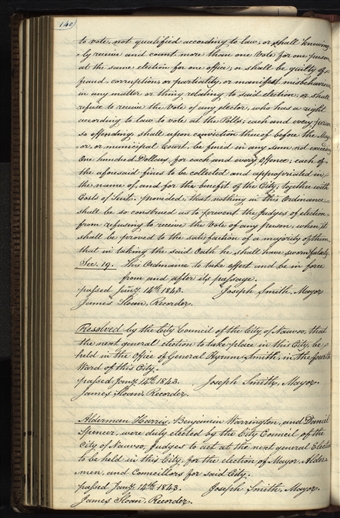 140
to vote, not qualified according to law; or shall knowing-
ly receive and count more than one Vote for one person
at the same election for one office; or shall be guilty of
fraud corruption or partiality, or manifest misbehavior
in any matter or thing relating to said election; or shall
refuse to receive the Vote of any elector, who has a right
according to law to vote at the Polls; each and every person
so offending shall upon conviction thereof before the May-
or, or municipal Court be fined in any sum not exceeding
One hundred Dollars, for each and every Offence; each of
the aforesaid fines to be collected and appropriated in
the name of, and for the benefit of the City, together with
Costs of Suit. provided, that nothing in this Ordinance
shall be so construed as to prevent the Judges of election
from refusing to receive the Vote of any person when it
shall be proved to the satisfaction of a majority of them
that in taking the said Oath he shall have sworn falsely.
Sec. 19. This Ordinance to take effect and be in force
from and after its passage.
passed Jany. 14th 1843. Joseph Smith, Mayor.
James Sloan, Recorder.
Resolved by the City Council of the City of Nauvoo, that
the next general election to take place in this City, be
held in the Office of General Hyrum Smith, in the fourth
Ward of this City.
passed Jany. 14th 1843. Joseph Smith, Mayor.
James Sloan Recorder.
Alderman Harris, Benjamin Warrington, and Daniel
Spencer, were duly elected by the City Council of the
City of Nauvoo, Judges to act at the next general Election
to be held in this City, for the election of Mayor, Alder-
men, and Councillors for said City.
passed Jany. 14th 1843. Joseph Smith, Mayor.
James Sloan, Recorder.